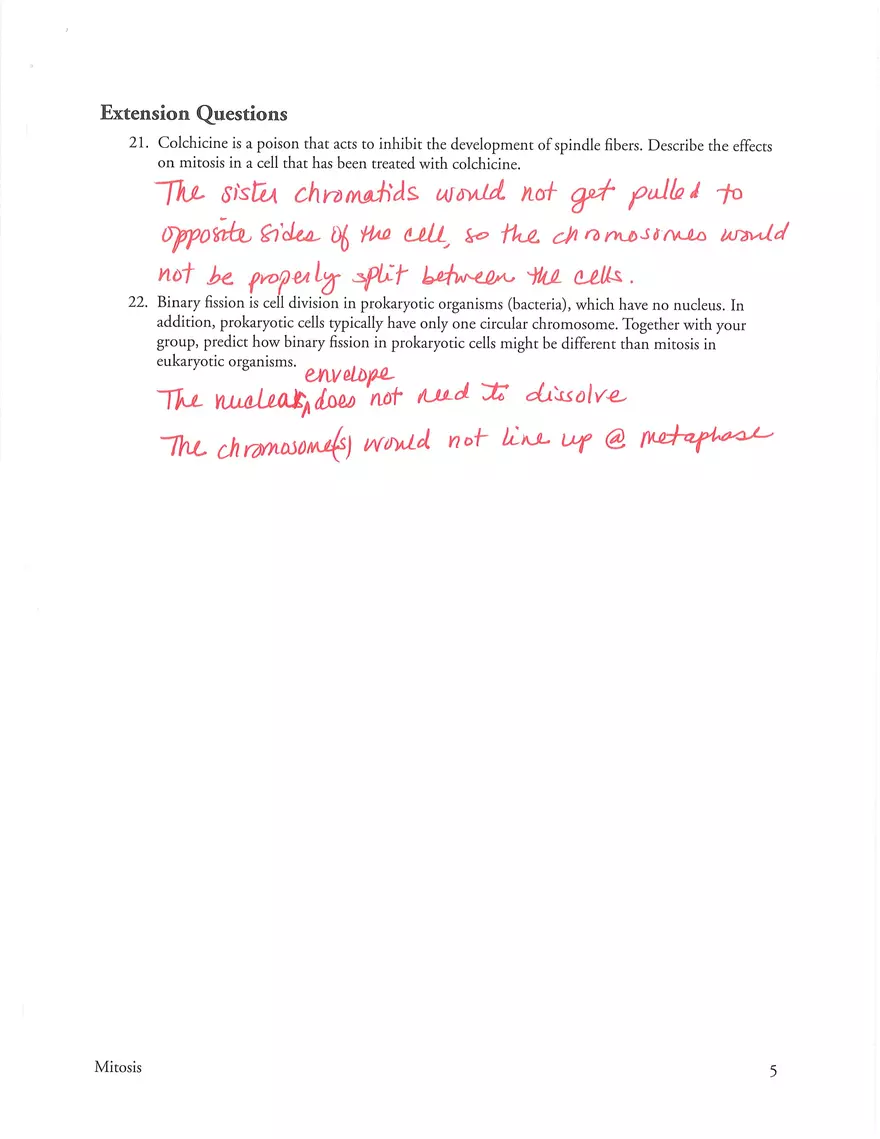 Extension Questions
21. Colchicine is a poison that acts to inhibit the development of spindle fibers. Describe the effects
on mitosis in a cell that has been treated with colchicine.
The sister chromatids would not get pulled to
opposite sides of the cell, so the chromosomes would
not be properly split between the cells.
22. Binary fission is cell division in prokaryotic organisms (bacteria), which have no nucleus. In
addition, prokaryotic cells typically have only one circular chromosome. Together with your
group, predict how binary fission in prokaryotic cells might be different than mitosis in
eukaryotic organisms.
envelope
The nuclear does not need to dissolve
The chromosome(s) would not line up @ metaphase
Mitosis
5